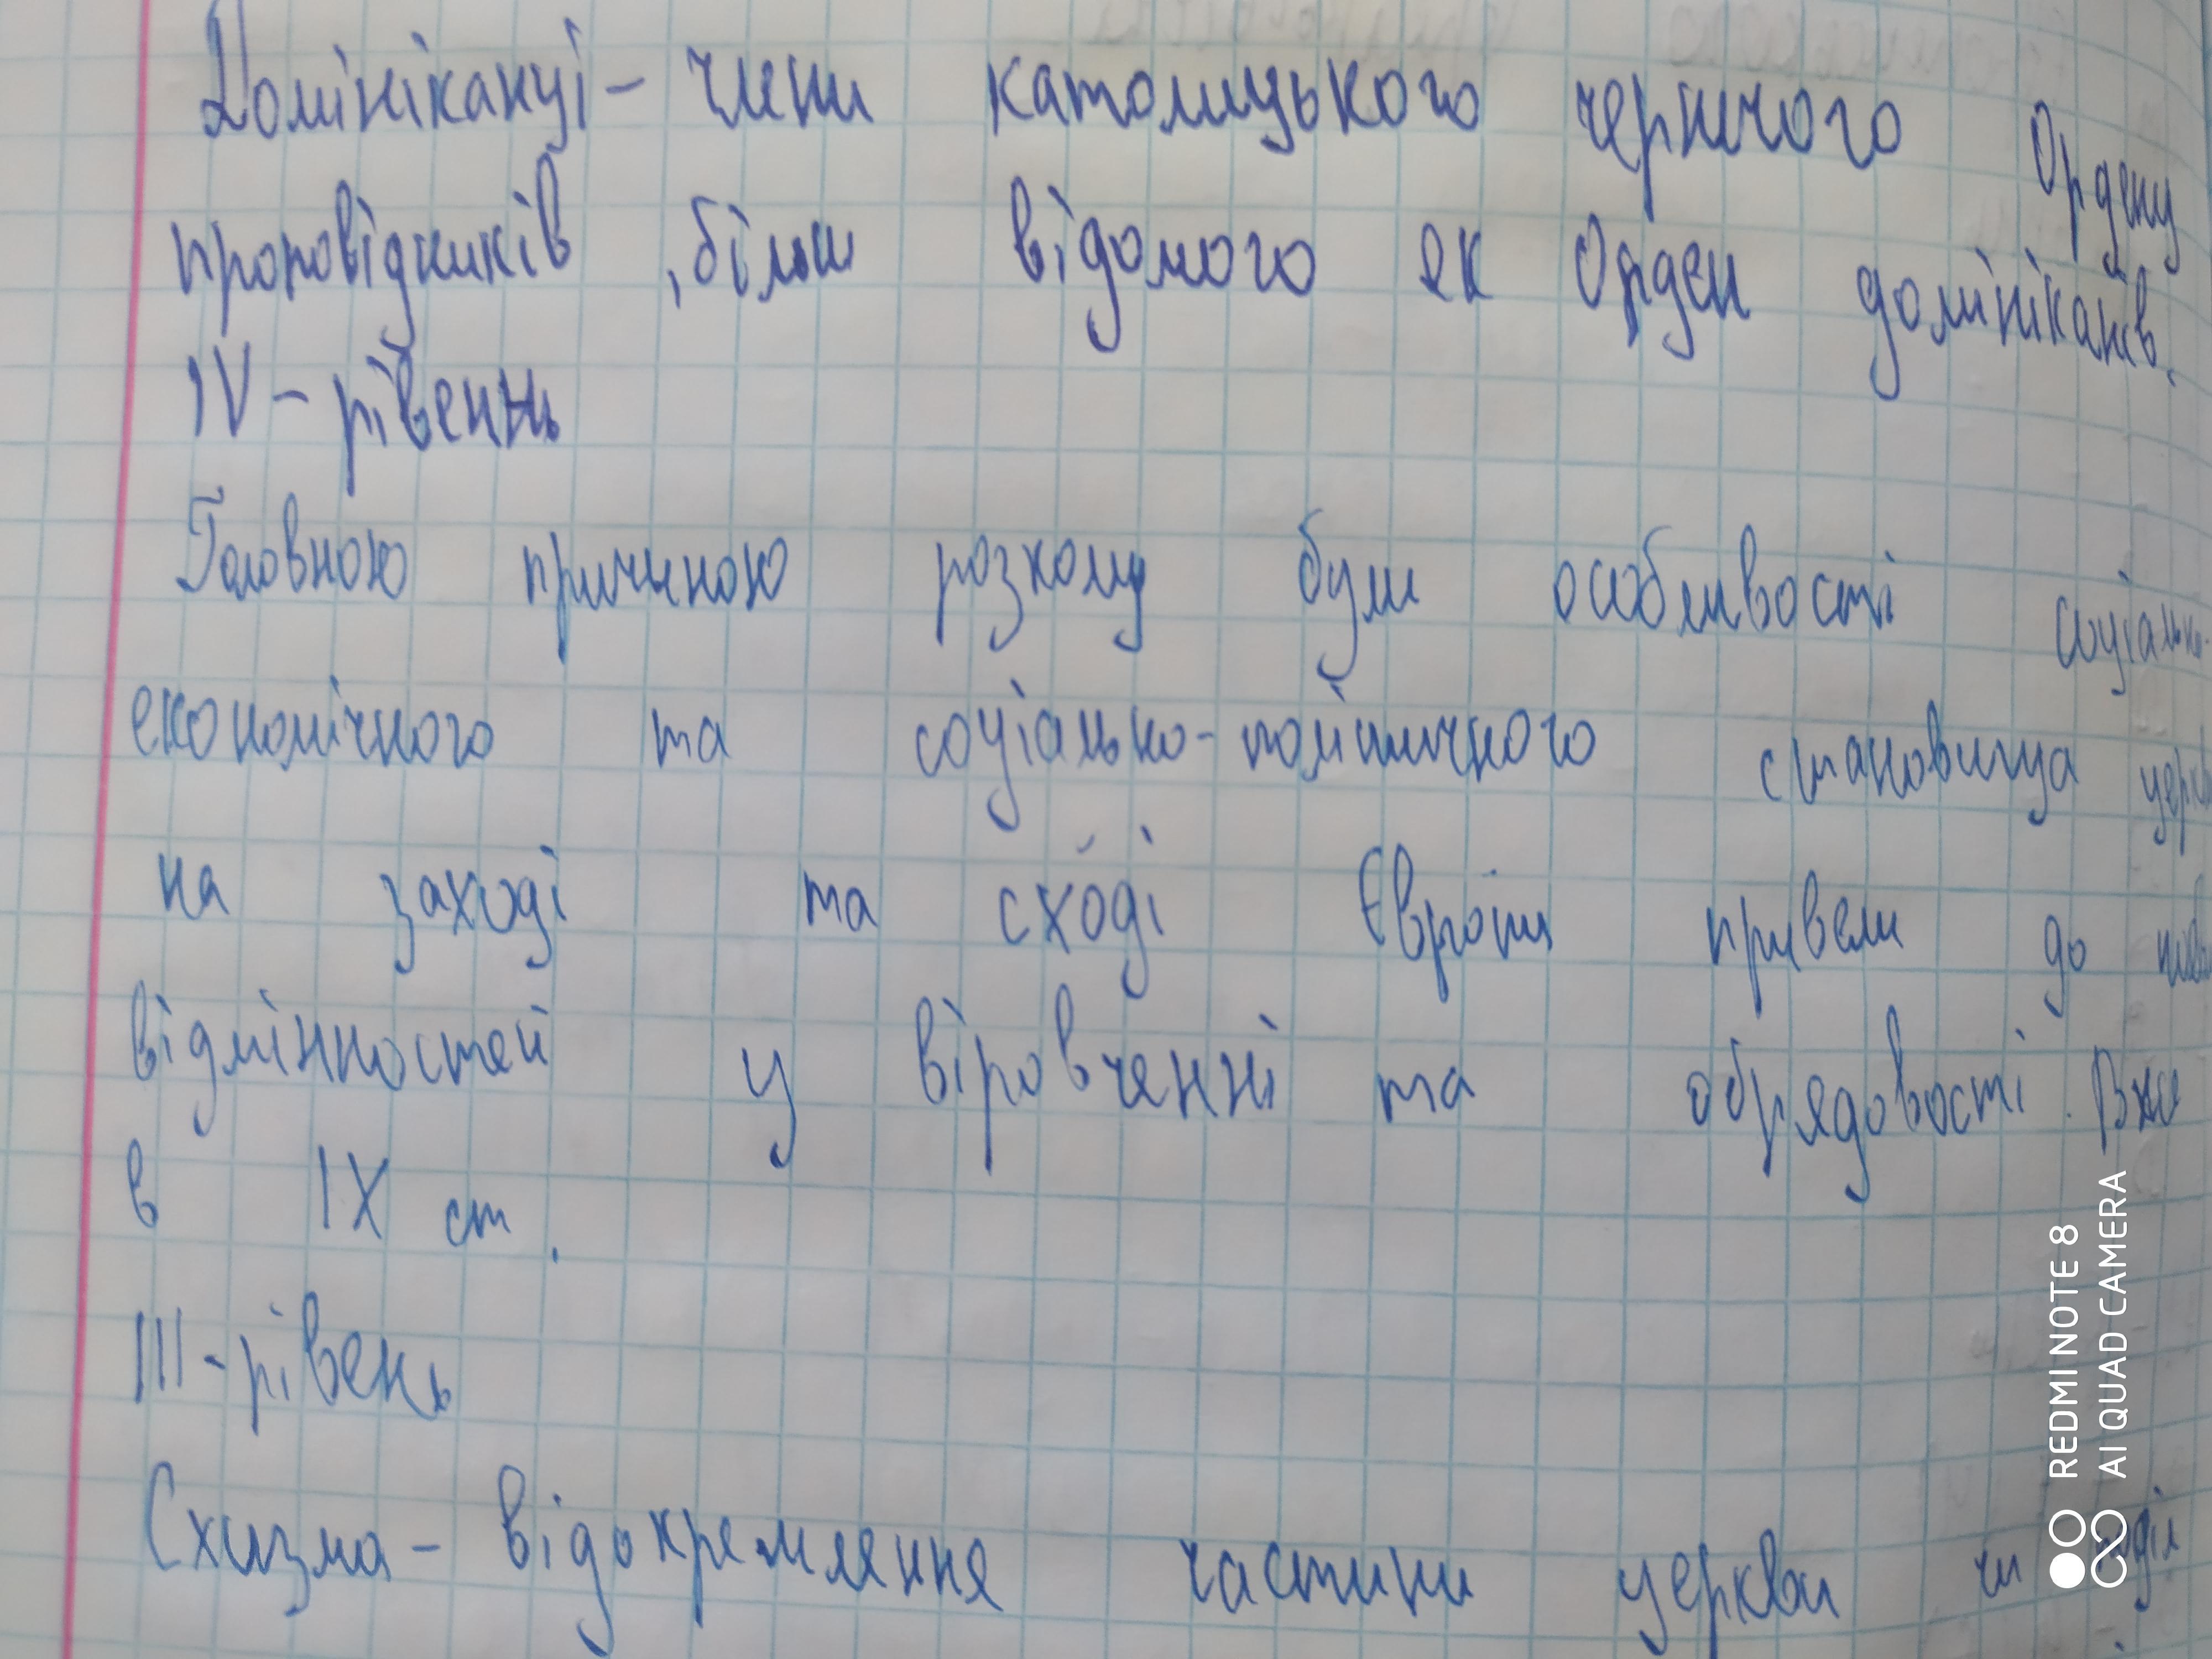 Домініканці - члени католицького чернчого Ордену
проповідників, більш відомого як Орден домініканів.
IV - рівень
Головною причиною розколу були особливості соціально-
економічного та соціально-політичного становища
на заході та сході Європи привели до
відмінностей у віровченні та обрядовості. Вже
в IX ст.
III - рівень
Схизма - відокремляння частини церкви чи
REDMI NOTE 8
AI QUAD CAMERA